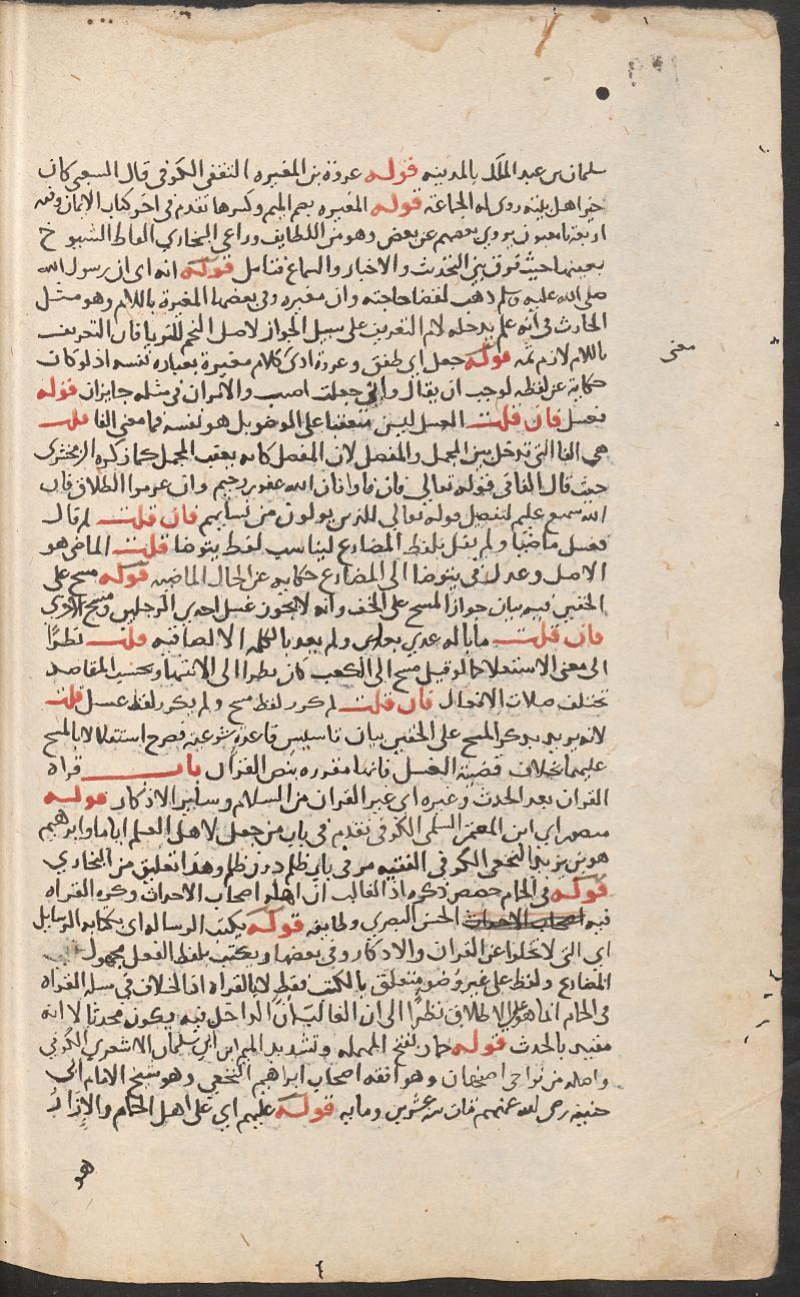 سلمان بن عبد الملك بالمدينه قوله عروة بن المغيره الثقفي الكوفي قال الشعبي كان
خير اهل بيته روى له الجماعه قوله المغيره بضم الميم وكسرها تقدم في اخر كتاب الايمان وفيه
اربعة تابعيون يروي بعضهم عن بعض وهو من اللطايف وراعى البخاري الفاظ الشيوخ
بعينها حيث فرق بين التحديث والاخبار والسماع فتامل قوله انه اى ان رسول الله
صلى الله عليه وسلم ذهب لقضا حاجته وان مغيره وفى بعضها المغيرة باللام وهو مثل
الحارث في انه علم يدخله لام التعريف على سبيل الجواز لا مثل النجم للثريا فان التعريف
باللام لازم ثمه قوله جعل اى طفق وعروة ادى كلام مغيرة بعباره نفسه اذ لو كان
معنى
حكاية عن لفظه لوجب ان يقال واني جعلت اصب والامران في مثله جايزان قوله
فغسل فان قلت الغسل ليس متعقبا على الوضو بل هو نفسه فما معنى الفا قلت
هي الفا التي تدخل بين المجمل والمفصل لان المفصل كانه يعقب المجمل كما ذكره الزمخشرى
حيث قال الفا في قوله تعالى فان فاوا فان الله غفور رحيم وان عزموا الطلاق فان
الله سميع عليم لتفصيل قوله تعالى للذين يولون من نسايهم فان قلت لم قال
فغسل ماضيا ولم يقل بلفظ المضارع ليناسب لفظ يتوضا قلت الماضى هو
الاصل وعدل في يتوضا الى المضارع حكايه عن الحال الماضيه قوله مسح على
الخفين فيه بيان جواز المسح على الخف وانه لا يجوز غسل احدى الرجلين ومسح الاخرى
فان قلت ما باله عدي بعلى ولم يعد بالكلمه الالصاقيه قلت نظرا
الى معنى الاستعلا كما لو قيل مسح الى الكعب كان نظرا الى الانتها وبحسب المقاصد
تختلف صلات الافعال فان قلت لم كرر لفظ مسح ولم يكرر لفظ غسل قلت
لانه يريد بذكر المسح على الخفين بيان تاسيس قاعدة شرعية فصرح استقلالا بالمسح
عليهما بخلاف قضية الغسل فانها مقرره بنص القرآن باب قراة
القران بعد الحدث وغيره اى غير القران من السلام وساير الاذكار قوله
منصور اي ابن المعتمر السلمى الكوفى تقدم في باب من جعل لاهل العلم اياما وابراهيم
هو بن يزيد النخعى الكوفى الفقيه مر فى باب ظلم دون ظلم وهذا تعليق من البخاري
قوله فى الحمام خصص ذكره اذ الغالب ان اهله اصحاب الاحداث وكره القراه
فيه الحسن البصري وطايفه قوله يكتب الرساله اى بكتابه الرسايل
اى التى لا تخلوا عن القران والاذكار وفى بعضها ويكتب بلفظ الفعل مجهول
المضارع ولفظ على غير وضو متعلق بالكتب فقط لا بالقراه اذ الخلاف في مسلة القراة
فى الحمام انما هو على الاطلاق نظرا الى ان الغالب ان الداخل فيه يكون محدثا لا انه
مقيد بالحدث قوله حماد بفتح المهمله وتشديد الميم ابن ابي سلمان الاشعري الكوفي
واصله من نواحى اصفهان وهو افقه اصحاب ابراهيم النخعي وهو شيخ الامام ابى
حنيفه رضى الله عنهم مات سنه عشرين ومايه قوله عليهم اي على اهل الحمام والازار
هو